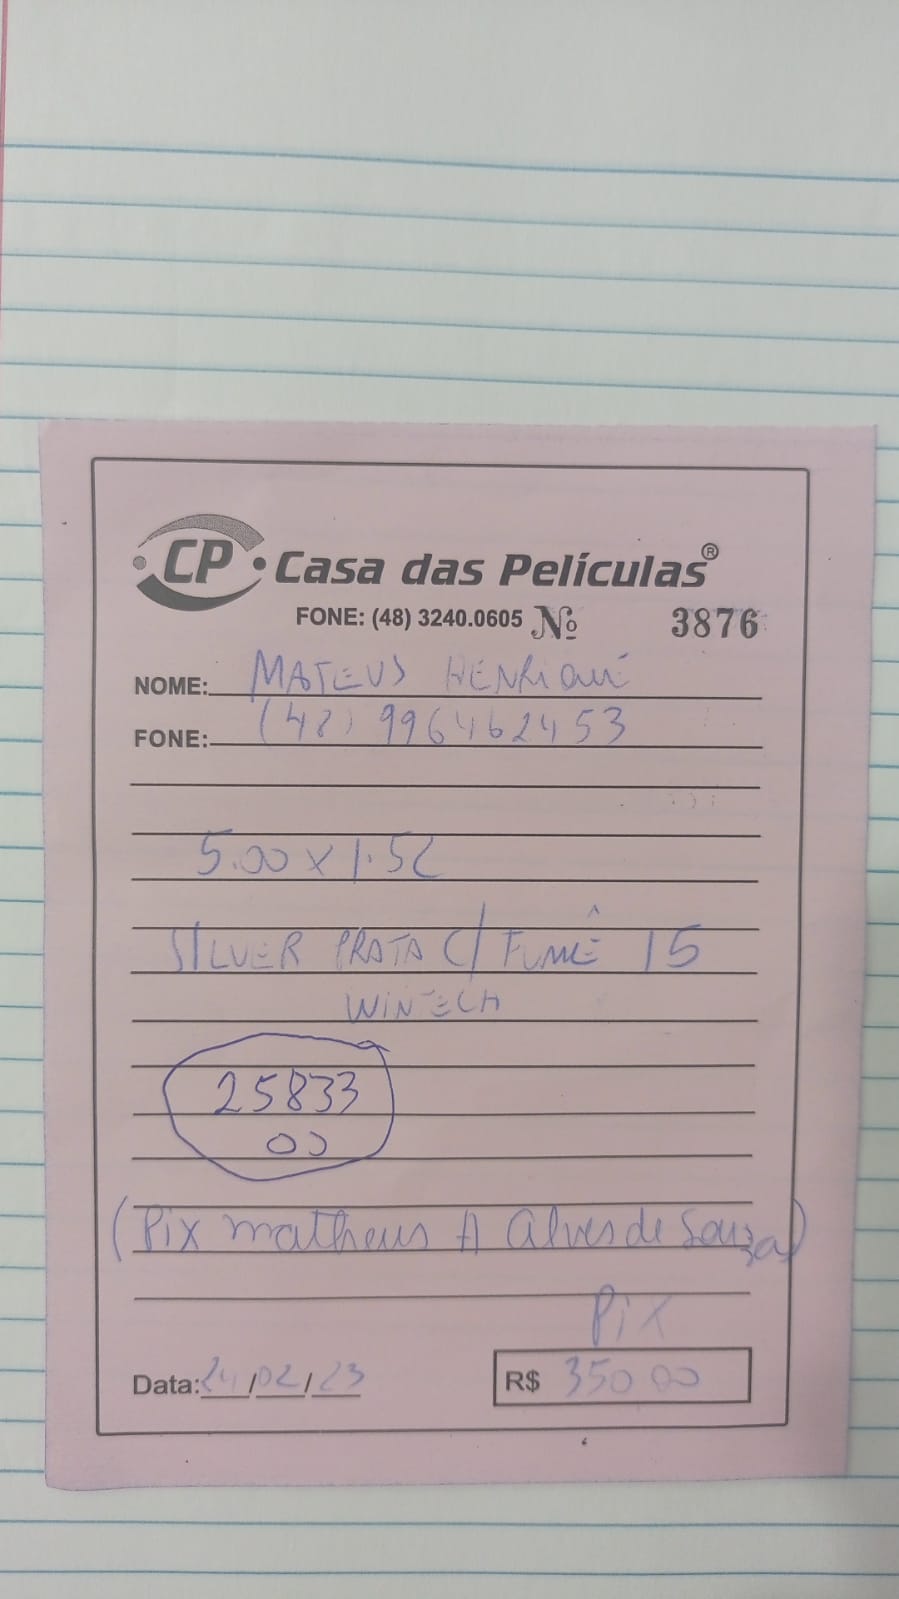 CP Casa das Películas®
FONE: (48) 3240.0605 Nº 3876
NOME: MATEUS HENRIQUE
FONE: (48) 996462453
5.00 x 1.52
SILVER PRATA C/ FUMÊ 15
WINTECH
25833
00
(Pix matheus A Alves de Souza)
Pix
Data: 24/02/23 R$ 350 00